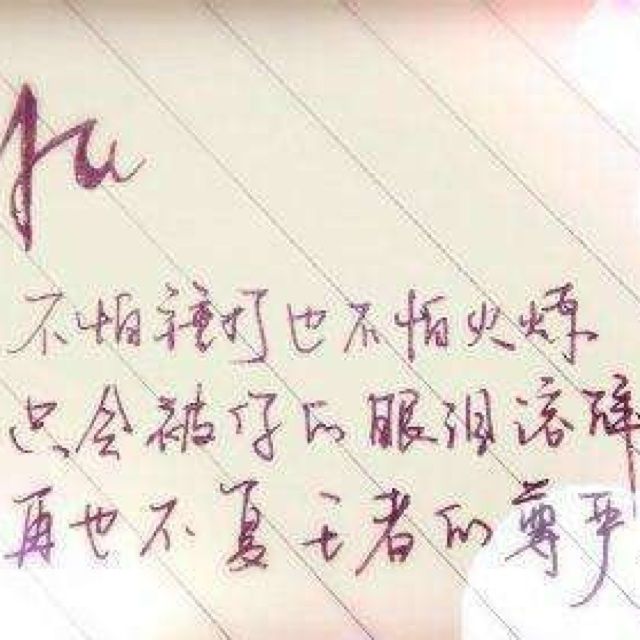 不怕捶打也不怕火炼
只会被你的眼泪溶碎
再也不复王者的尊严